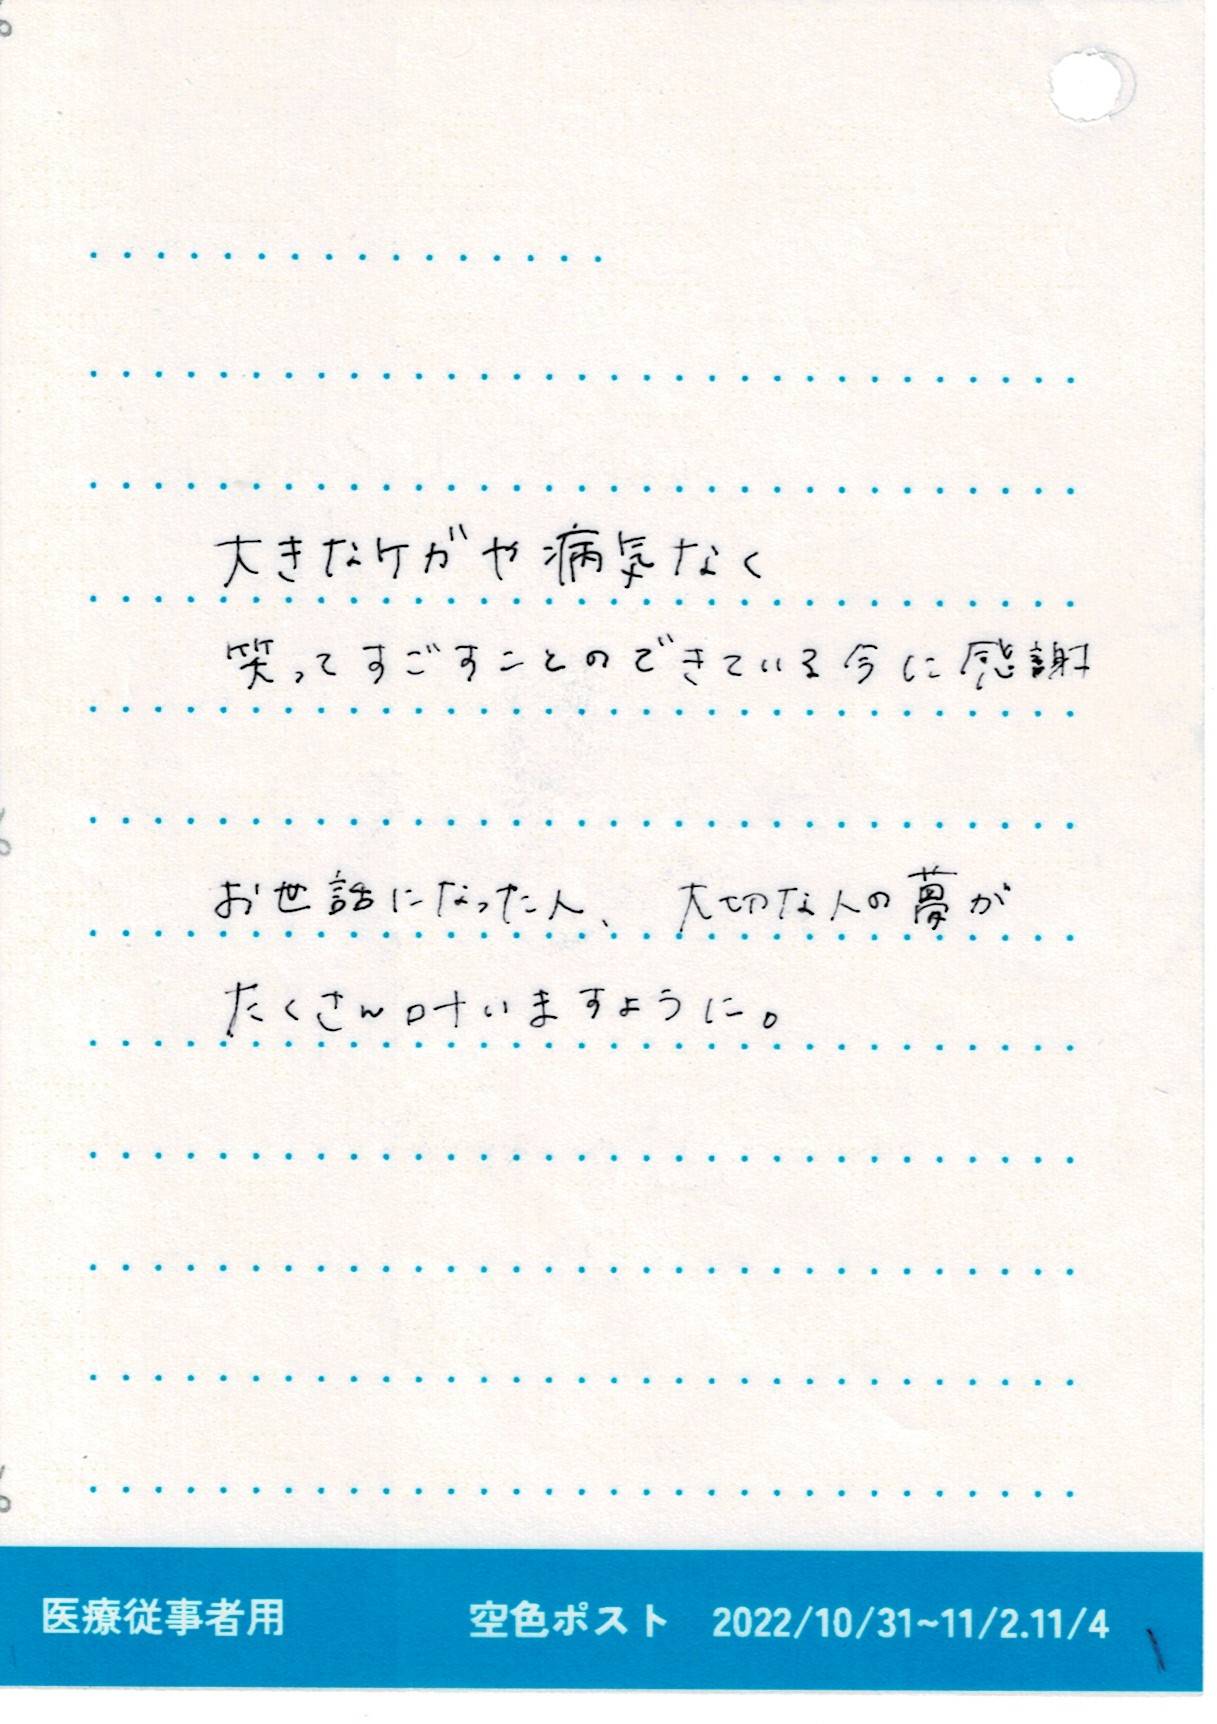 大きなケガや病気なく
笑ってすごすことのできている今に感謝
お世話になった人、大切な人の夢が
たくさん叶いますように。
医療従事者用 空色ポスト 2022/10/31~11/2.11/4